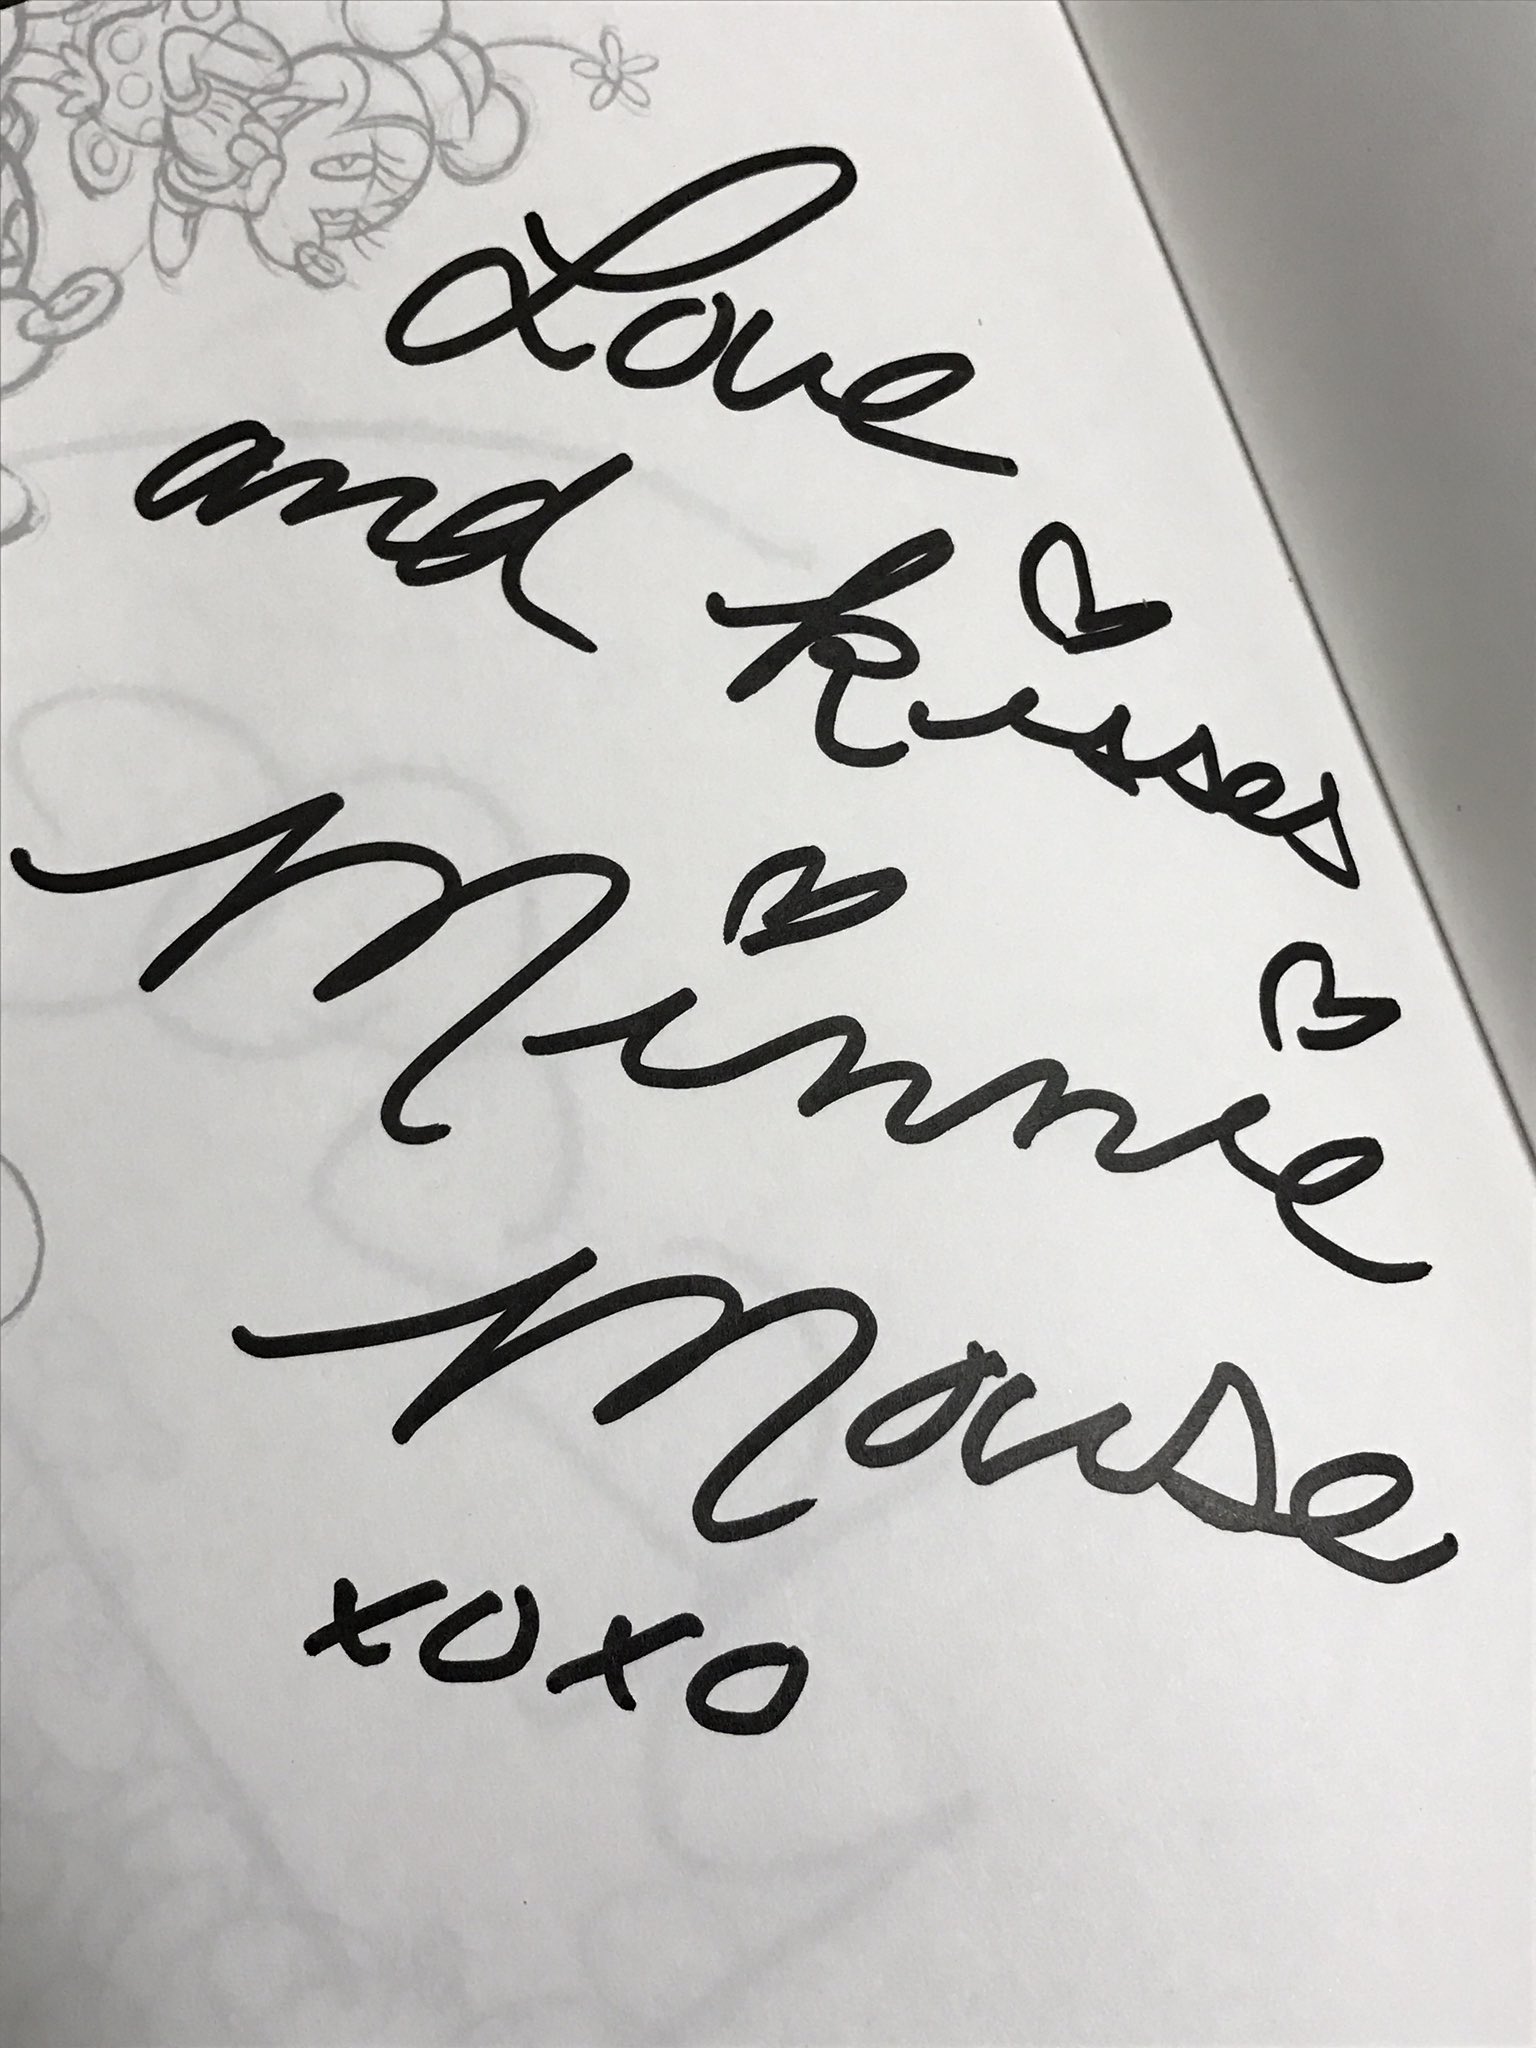 Love
and Kisses
Minnie
Mouse
xoxo